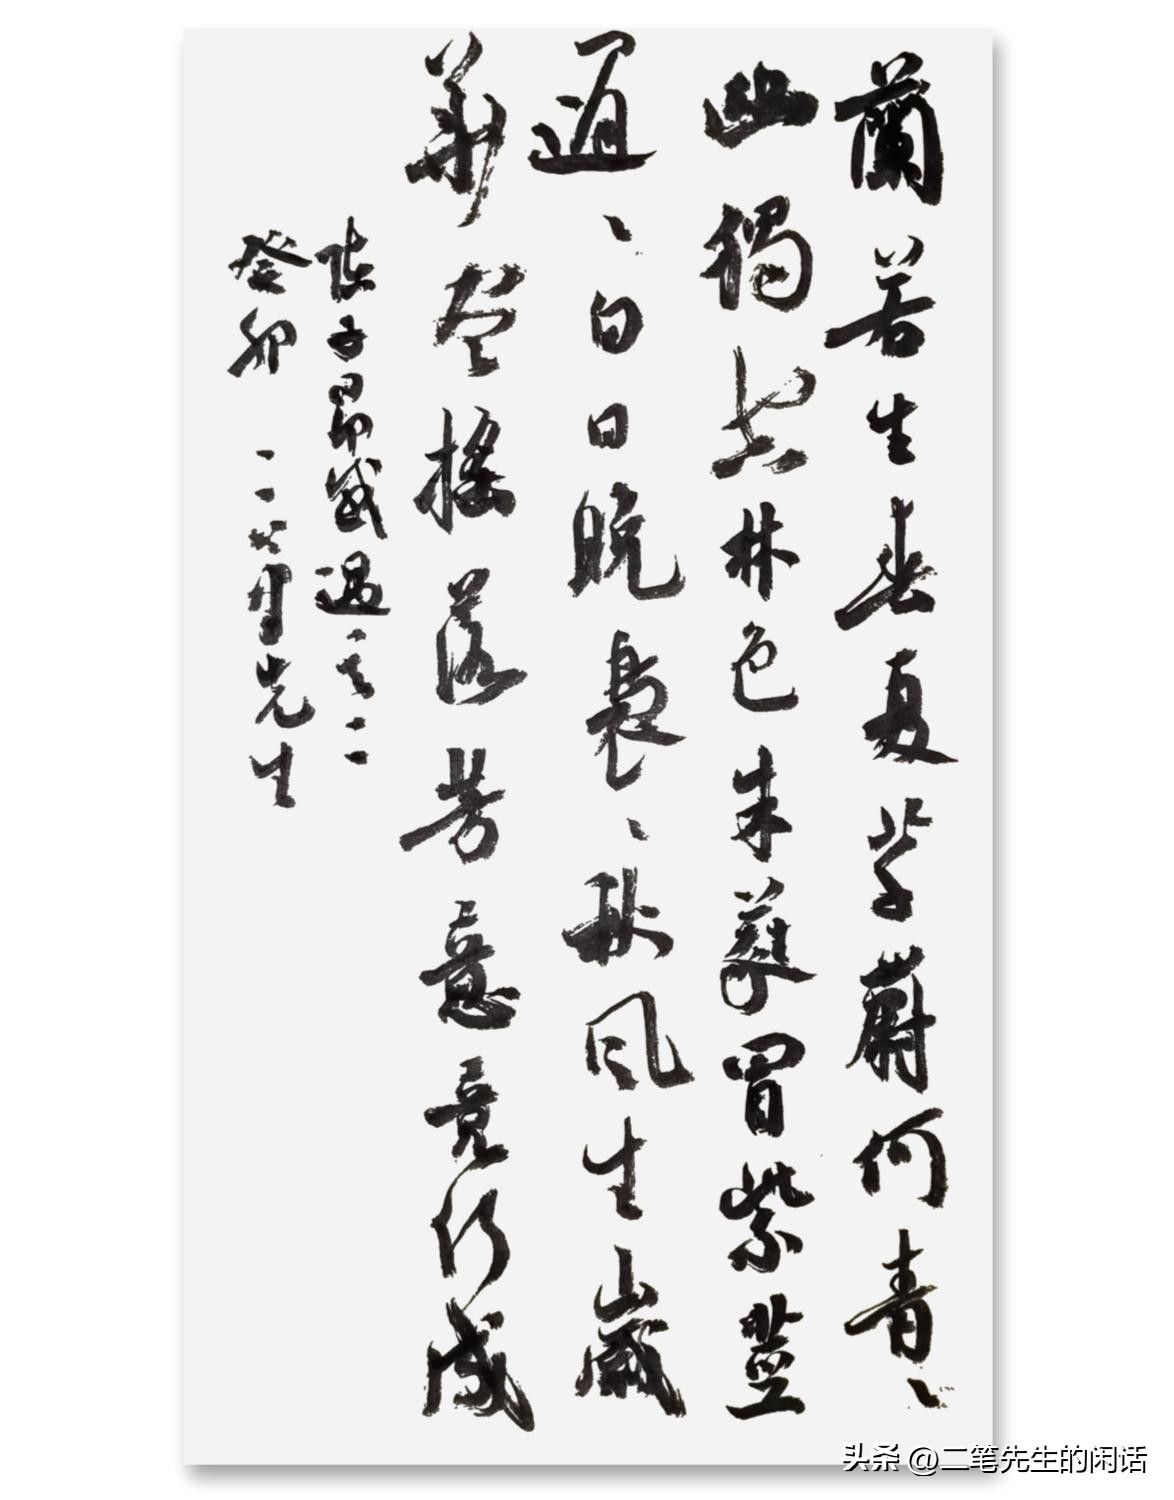 蘭若生春夏芊蔚何青、
幽獨空林色朱蕤冒紫莖
遲、白日晚裊、秋風生歲
華盡搖落芳意竟何成
陳子昂感遇其二
癸卯二筆先生
头条 @二笔先生的闲话